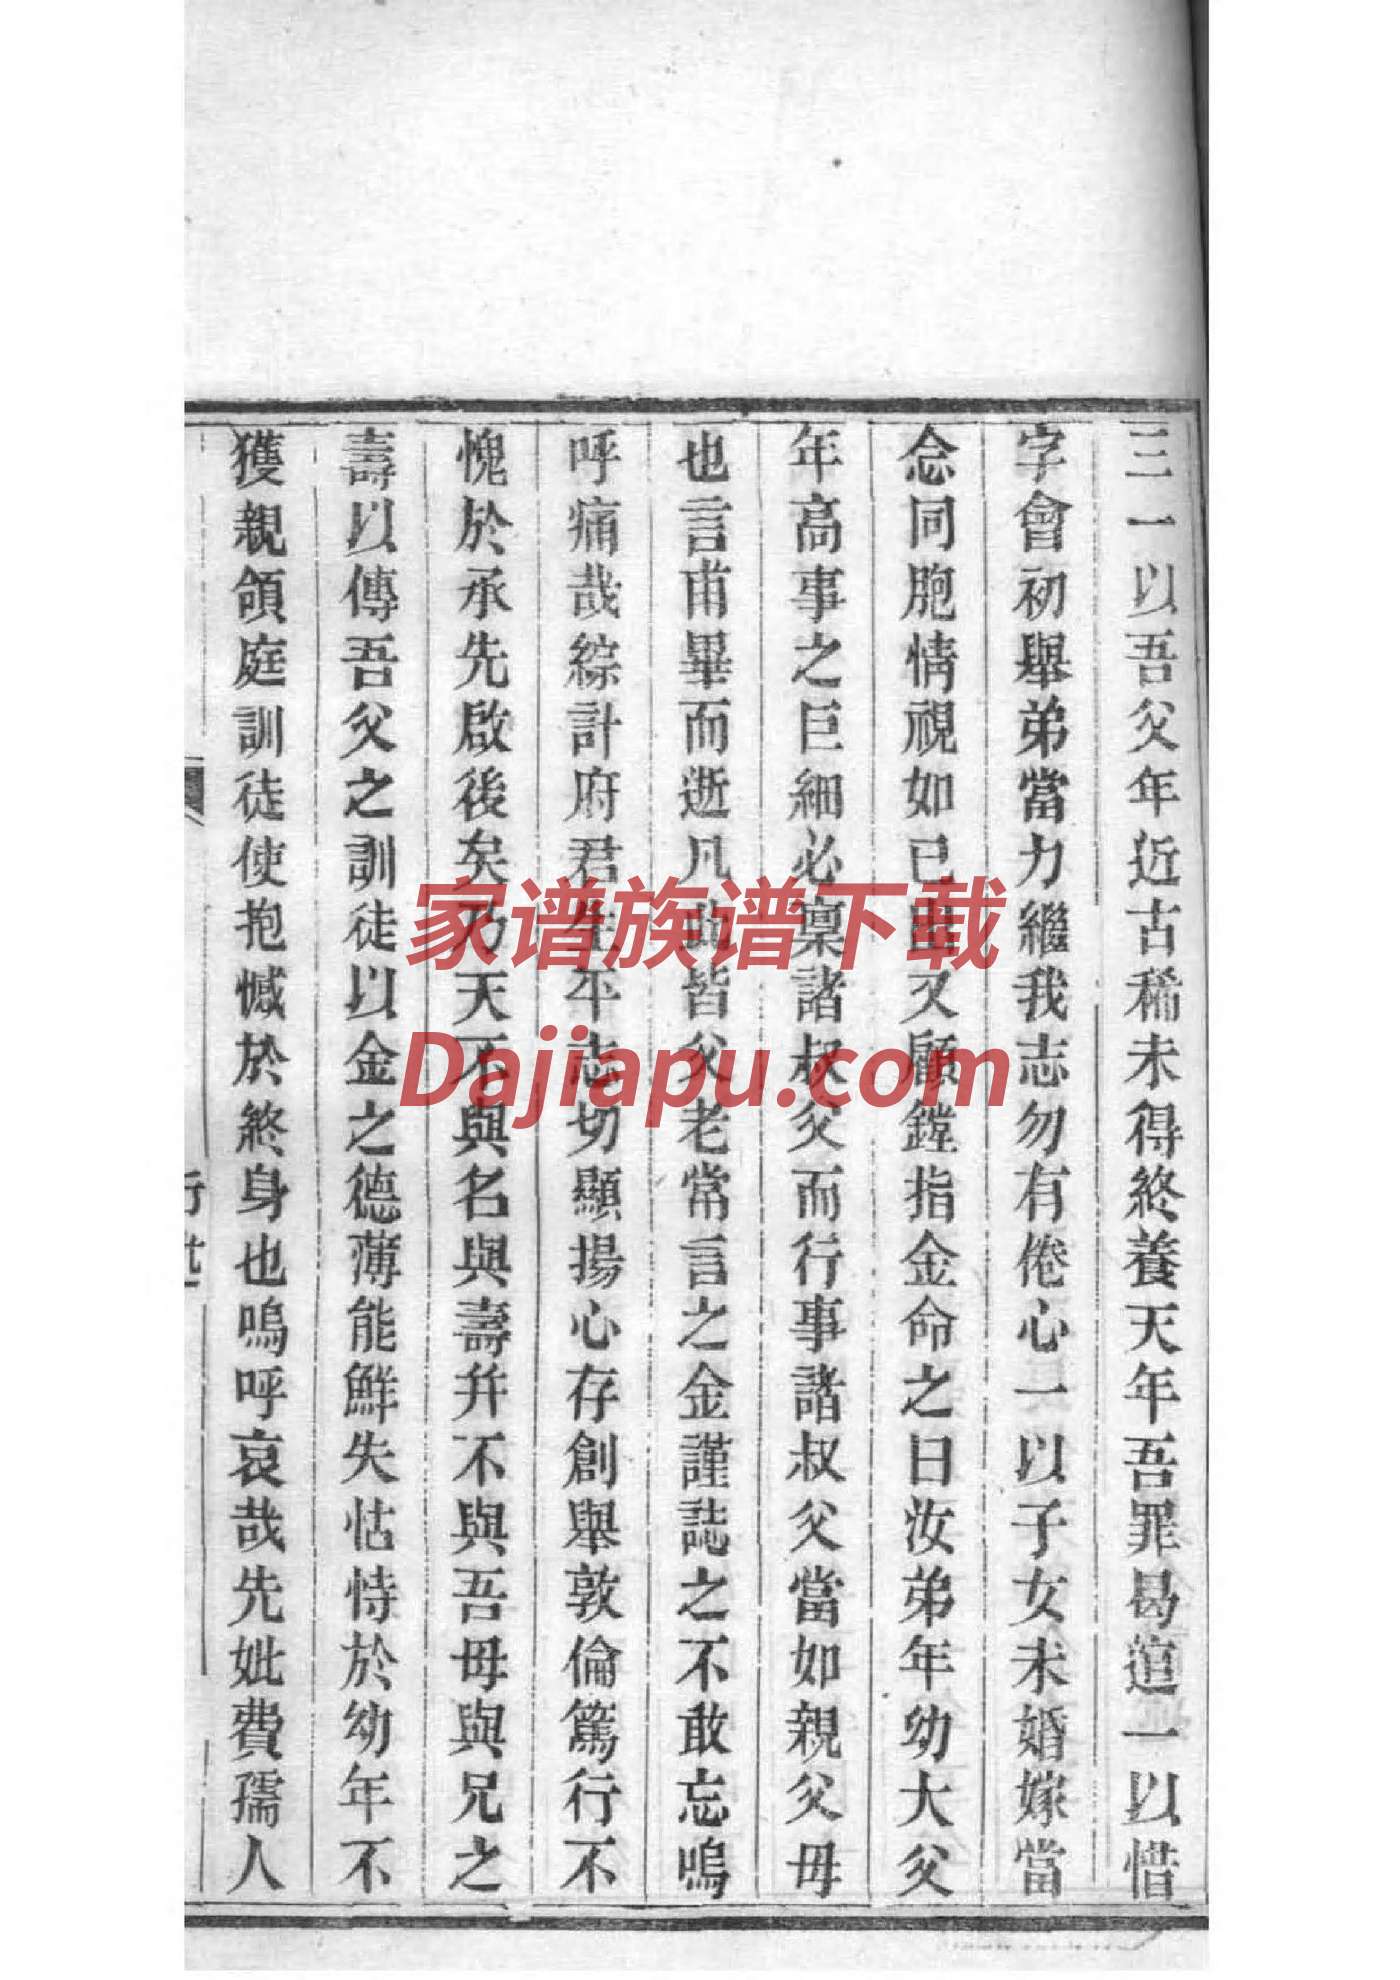 三一以吾父年近古稀未得終養天年吾罪曷逭一以惜
字會初舉弟當力繼我志勿有倦心一以子女未婚嫁當
念同胞情視如已出又顧鏜指金命之曰汝弟年幼大父
年高事之巨細必稟諸叔父而行事諸叔父當如親父母
也言甫畢而逝凡此皆父老常言之金謹誌之不敢忘嗚
呼痛哉綜計府君生平志切顯揚心存創舉敦倫篤行不
愧於承先啟後矣乃天不與名與壽并不與吾母與兄之
壽以傳吾父之訓徒以金之德薄能鮮失怙恃於幼年不
獲親領庭訓徒使抱憾於終身也嗚呼哀哉先妣費孺人
家谱族谱下载
Dajiapu.com